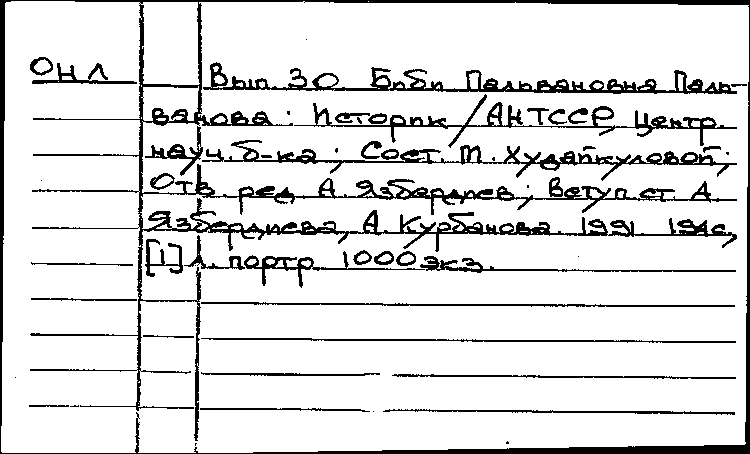 ОНЛ Вып. 30. Биби Пальвановна Паль-
ванова: Историк / АН ТССР, Центр.
науч. б-ка; Сост. М. Худайкуловой;
Отв. ред. А. Язбердиев; Вступ. ст. А.
Язбердиева, А. Курбанова. 1991. 194 с.,
[1] л. портр. 1000 экз.